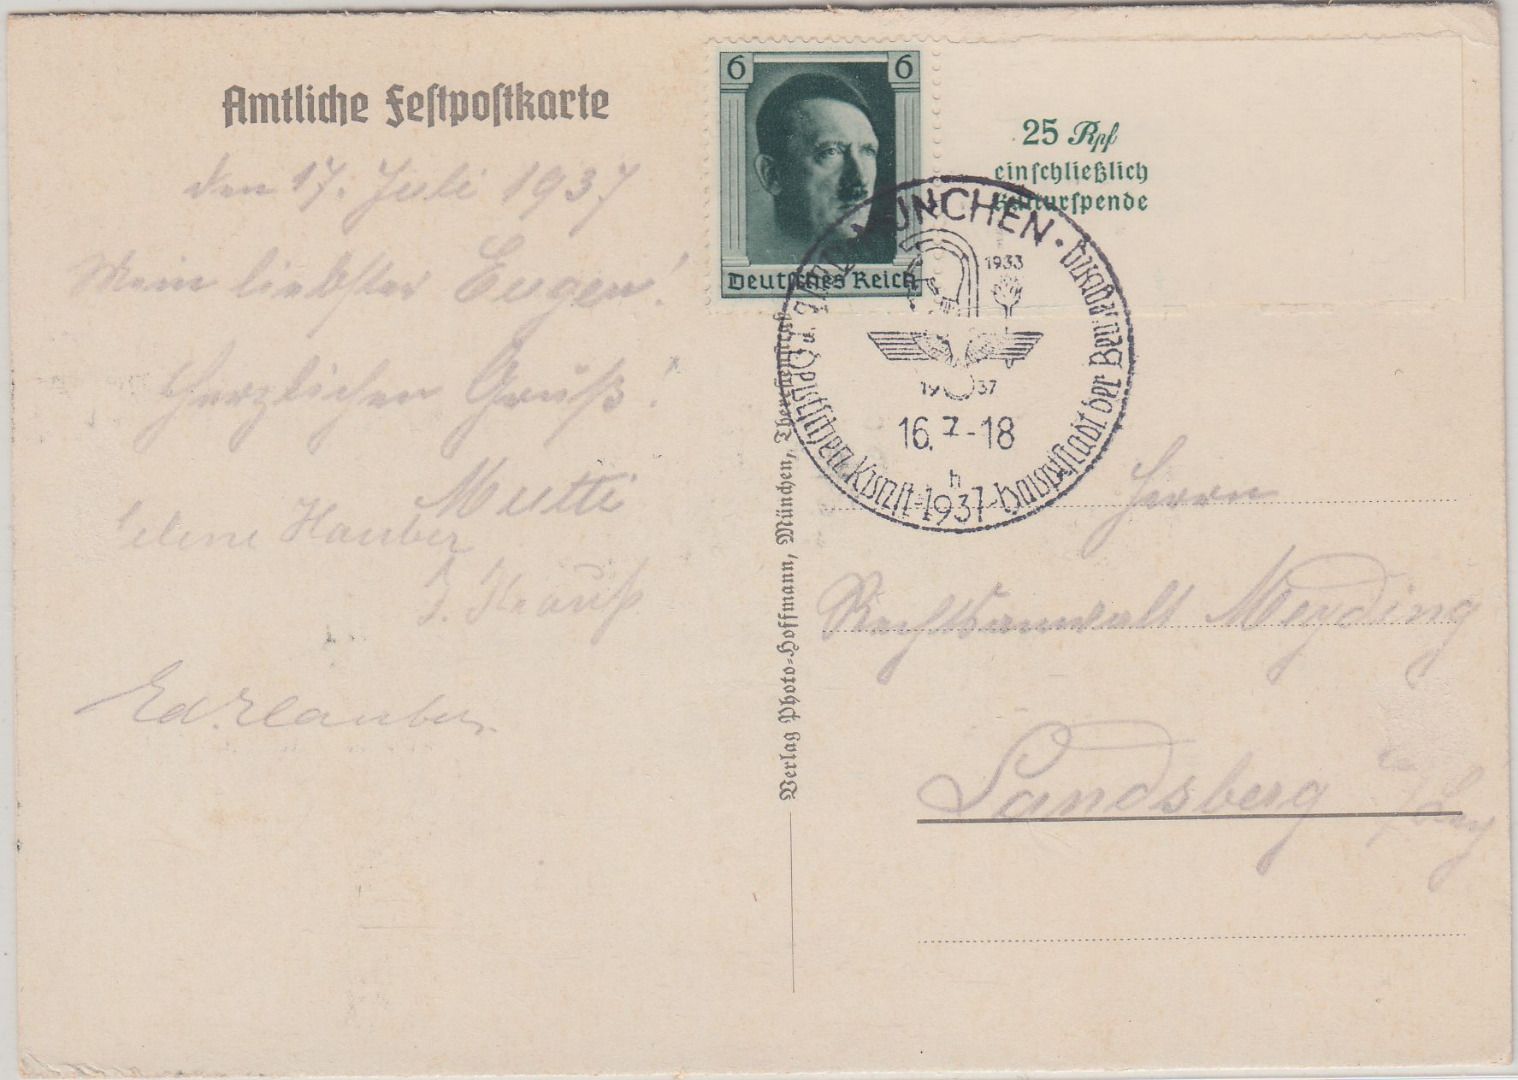 Amtliche Festpostkarte
den 17. Juli 1937
Mein liebster Eugen!
Herzlichen Gruß!
Mutti
Hauber
J. Strauß
Verlag Photo-Hoffmann, München, Theresienstraße
6 6
Deutsches Reich
25 Rpf
einschließlich
Kulturspende
MÜNCHEN · Hauptstadt der Bewegung
Tag der Deutschen Kunst · 1937
1933
1937
16.7-18
h
Herrn
Rechtsanwalt Meyding
Landsberg